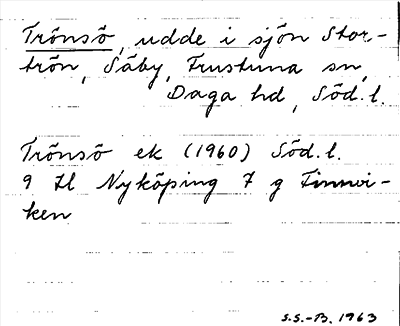 Trönsö, udde i sjön Stor-
trön, Säby, Frustuna sn,
Daga hd, Söd. l.
Trönsö ek (1960) Söd. l.
9 H Nyköping 7 g Finnvi-
ken
S.S.-B. 1963